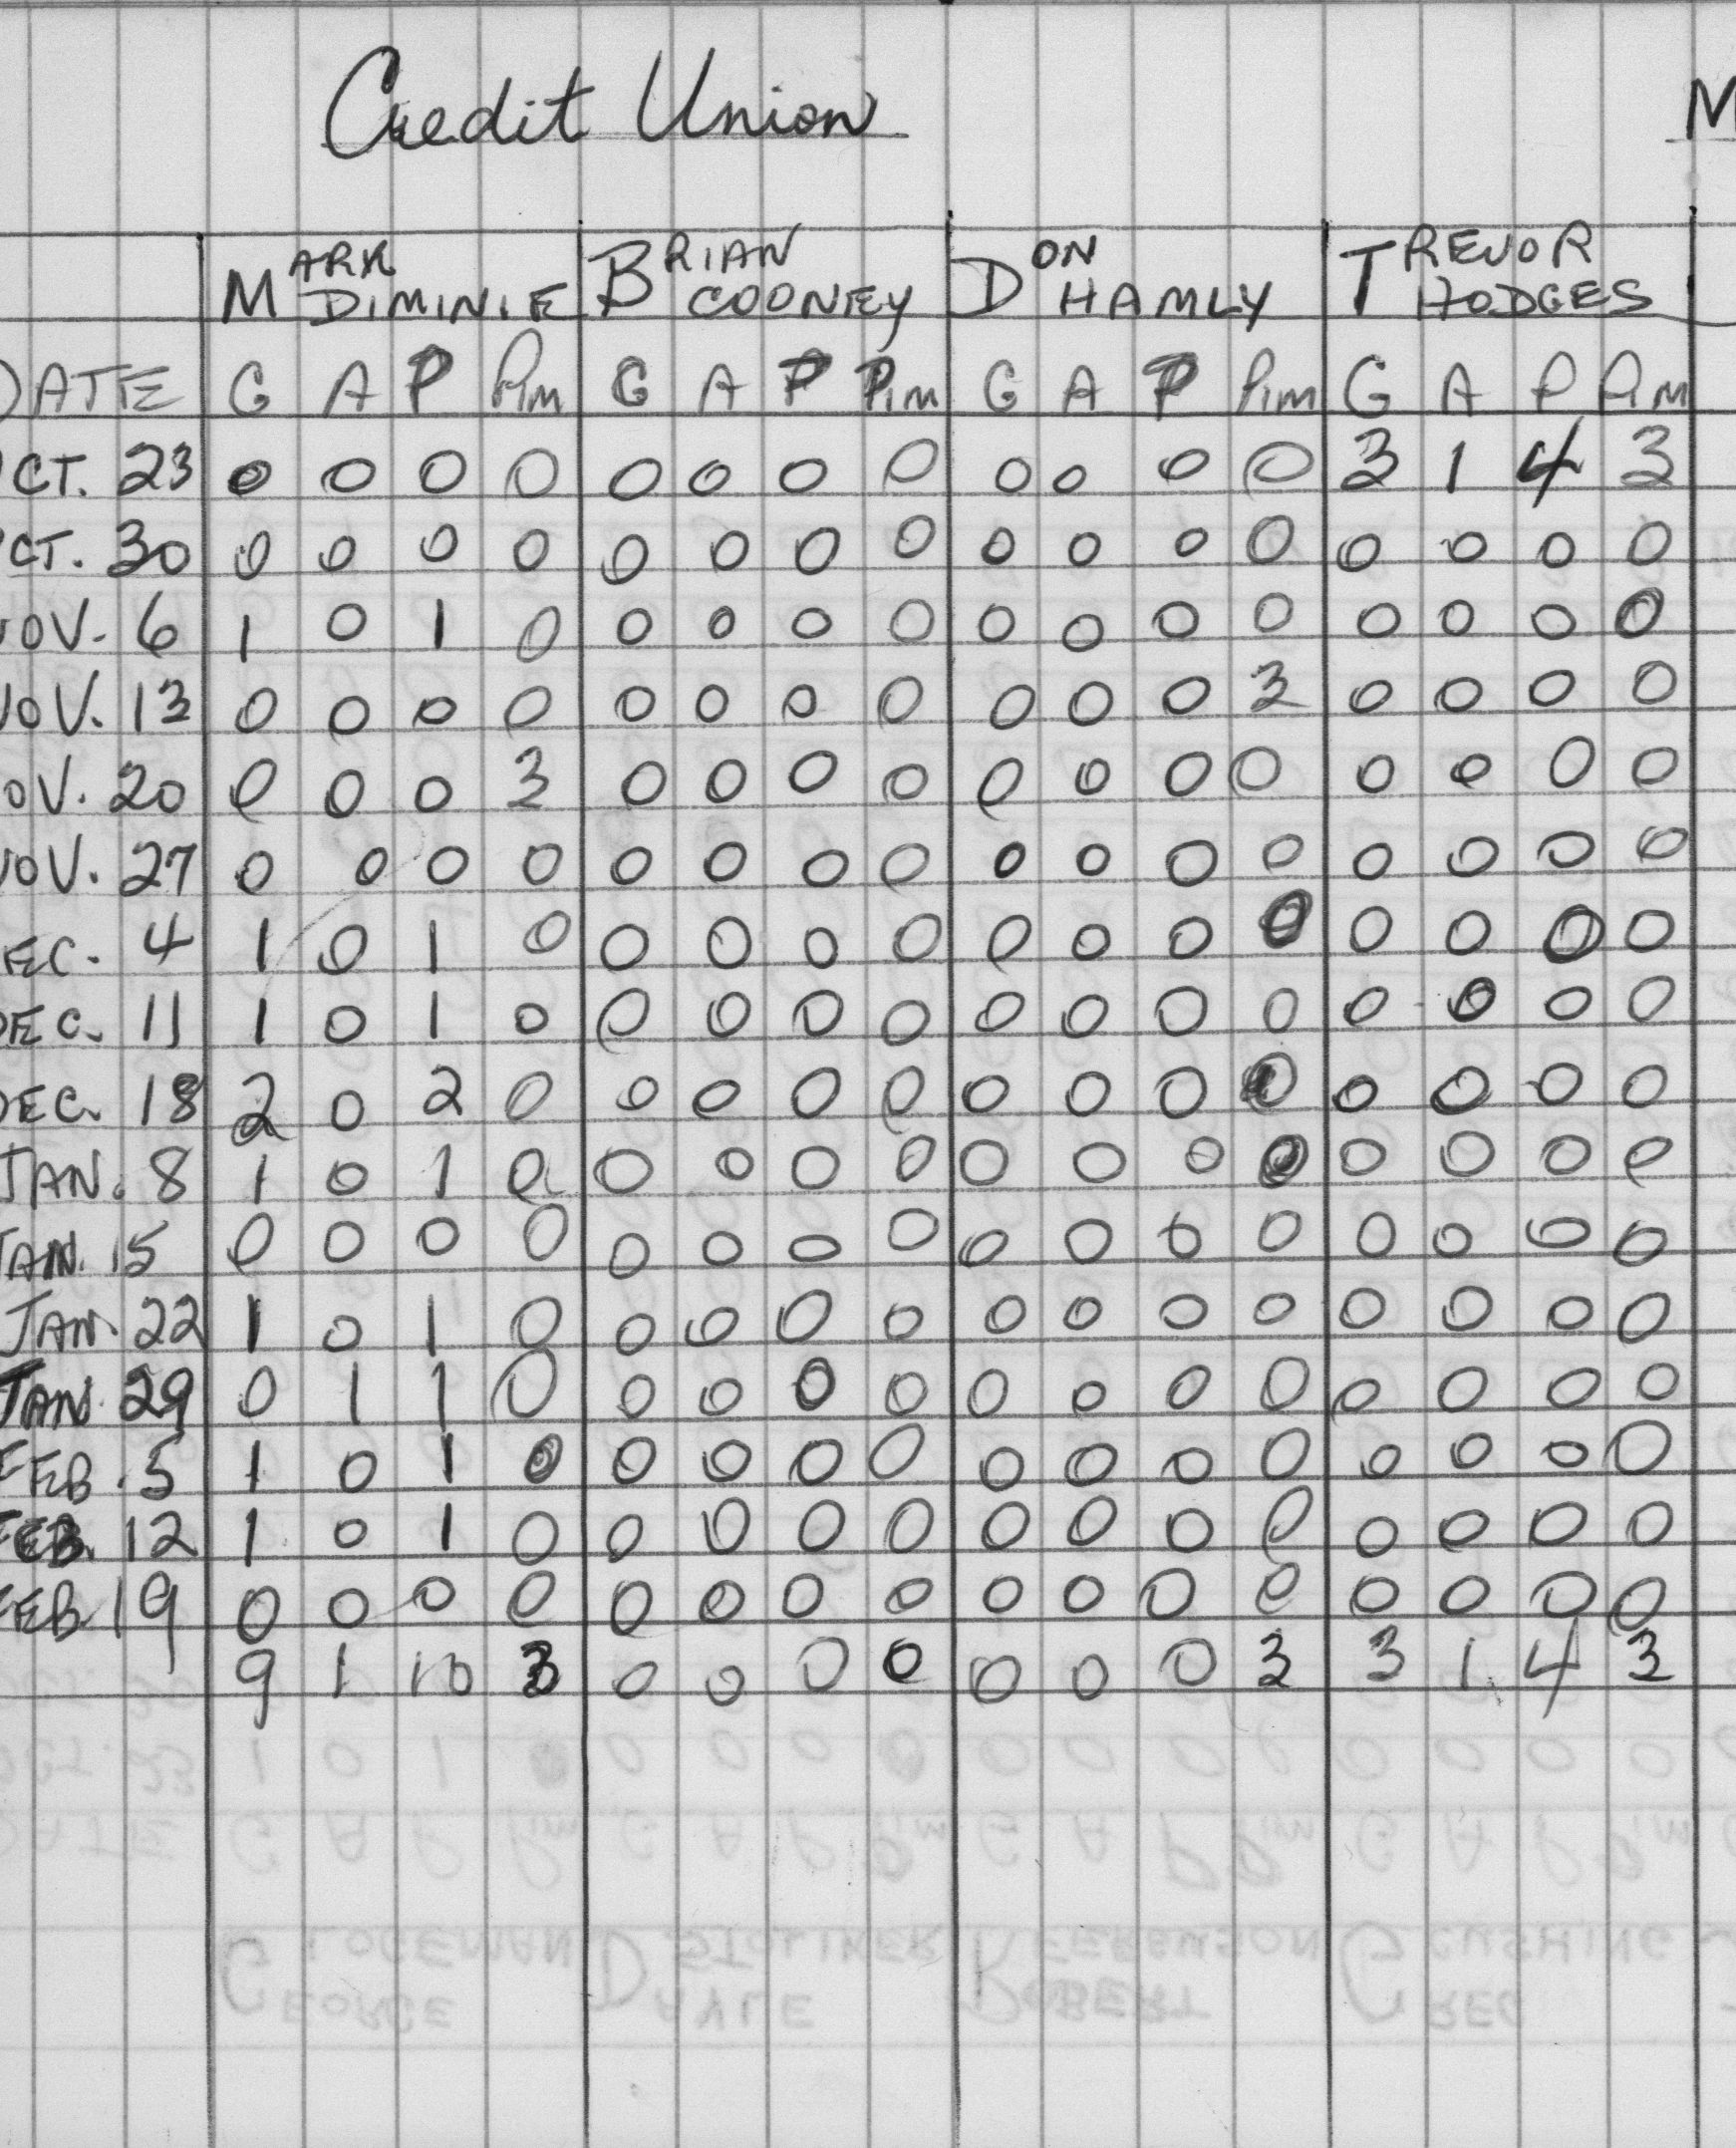 Credit Union M
MARK DIMINIE BRIAN COONEY DON HAMLY TREVOR HODGES
DATE G A P Pim G A P Pim G A P Pim G A P Pim
CT. 23 0 0 0 0 0 0 0 0 0 0 0 0 3 1 4 3
CT. 30 0 0 0 0 0 0 0 0 0 0 0 0 0 0 0 0
NOV. 6 1 0 1 0 0 0 0 0 0 0 0 0 0 0 0 0
NOV. 13 0 0 0 0 0 0 0 0 0 0 0 3 0 0 0 0
OV. 20 0 0 0 3 0 0 0 0 0 0 0 0 0 0 0 0
NOV. 27 0 0 0 0 0 0 0 0 0 0 0 0 0 0 0 0
EC. 4 1 0 1 0 0 0 0 0 0 0 0 0 0 0 0 0
DEC. 11 1 0 1 0 0 0 0 0 0 0 0 0 0 0 0 0
DEC. 18 2 0 2 0 0 0 0 0 0 0 0 0 0 0 0 0
JAN. 8 1 0 1 0 0 0 0 0 0 0 0 0 0 0 0 0
JAN. 15 0 0 0 0 0 0 0 0 0 0 0 0 0 0 0 0
JAN. 22 1 0 1 0 0 0 0 0 0 0 0 0 0 0 0 0
JAN. 29 0 1 1 0 0 0 0 0 0 0 0 0 0 0 0 0
FEB. 5 1 0 1 0 0 0 0 0 0 0 0 0 0 0 0 0
FEB. 12 1 0 1 0 0 0 0 0 0 0 0 0 0 0 0 0
FEB 19 0 0 0 0 0 0 0 0 0 0 0 0 0 0 0 0
9 1 10 3 0 0 0 0 0 0 0 3 3 1 4 3